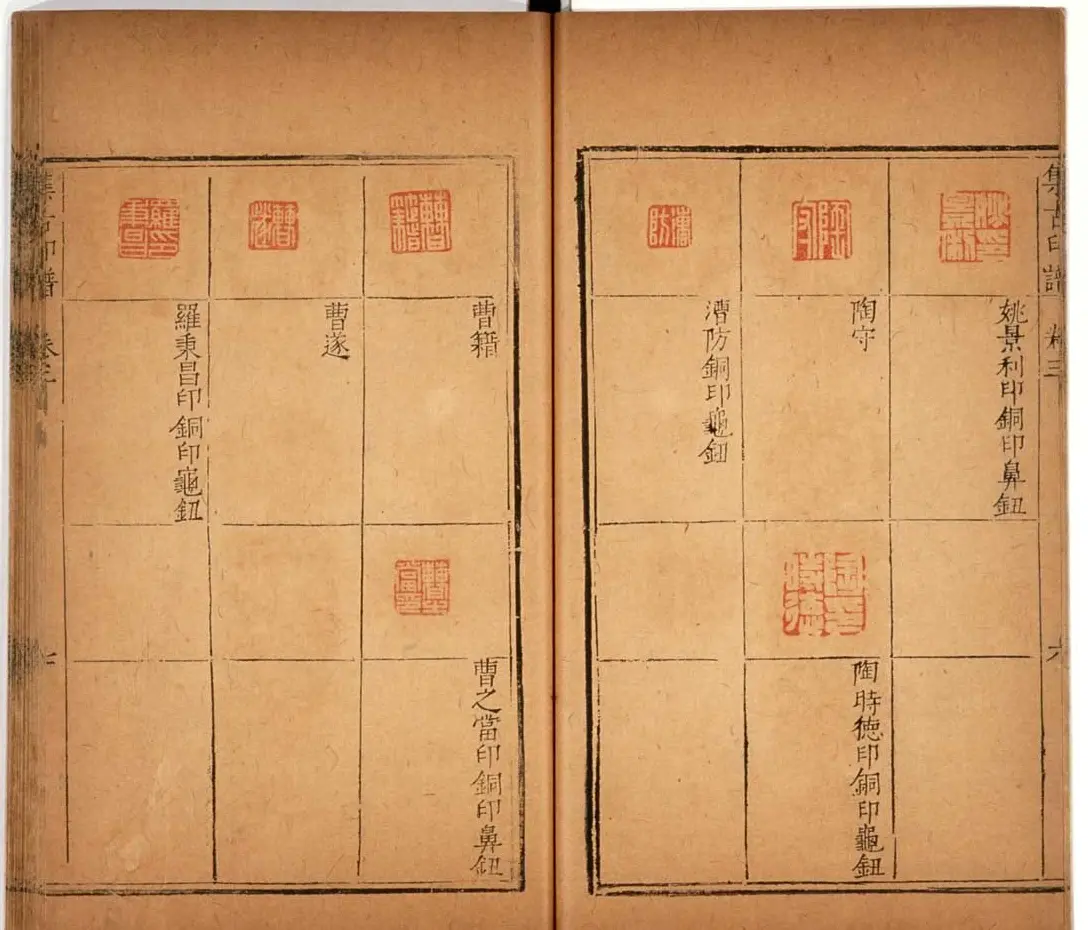 集古印譜
卷三
六
姚景利印銅印鼻鈕
陶守
陶時德印銅印龜鈕
漕防銅印龜鈕
曹籍
曹之當印銅印鼻鈕
曹遂
羅秉昌印銅印龜鈕
集古印譜
卷三
七